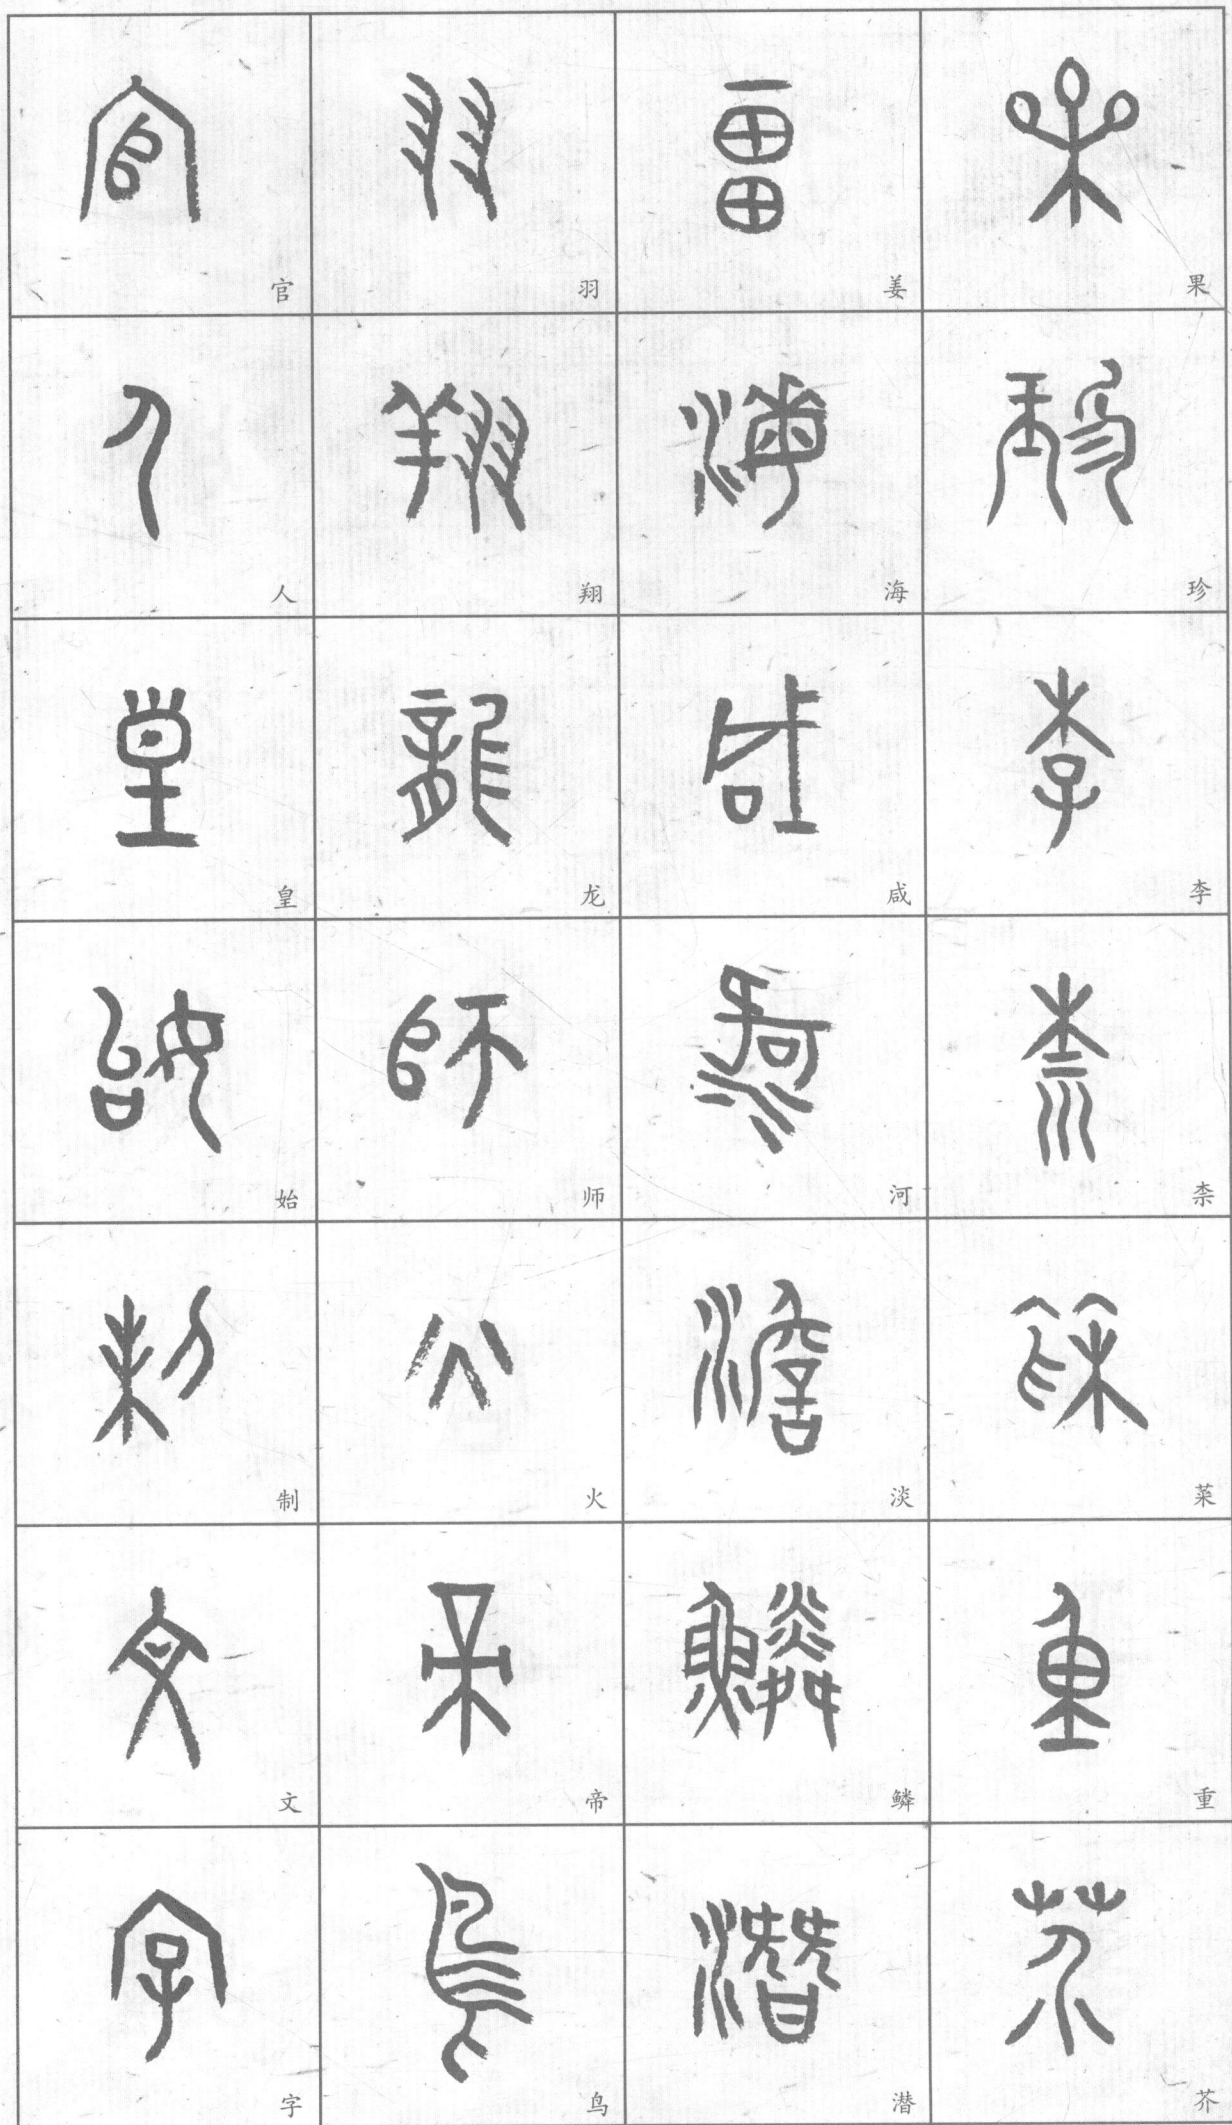 果珍李柰菜重芥
姜海咸河淡鳞潜
羽翔龙师火帝鸟
官人皇始制文字